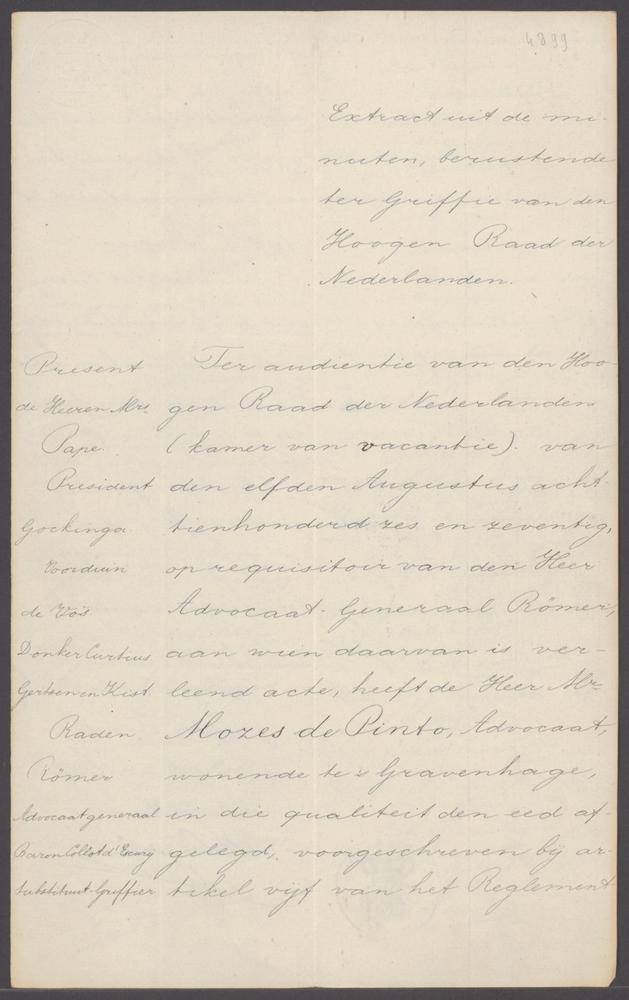 4899
Extract uit de mi-
nuten, berustende
ter Griffie van den
Hoogen Raad der
Nederlanden.
Present
de Heeren Mrs.
Pape.
President
Gockinga
Voorduin
de Vos
Donker Curtius
Gertsen en Kist
Raden
Römer
Advocaat generaal
Baron Collot d'Escury
Substituut Griffier
Ter audientie van den Hoo
gen Raad der Nederlanden
(kamer van vacantie). van
den elfden Augustus acht-
tienhonderd zes en zeventig,
op requisitoir van den Heer
Advocaat-Generaal Römer,
aan wien daarvan is ver-
leend acte, heeft de Heer Mr.
Mozes de Pinto, Advocaat,
wonende te 's Gravenhage,
in die qualiteit den eed af-
gelegd, voorgeschreven bij ar-
tikel vijf van het Reglement